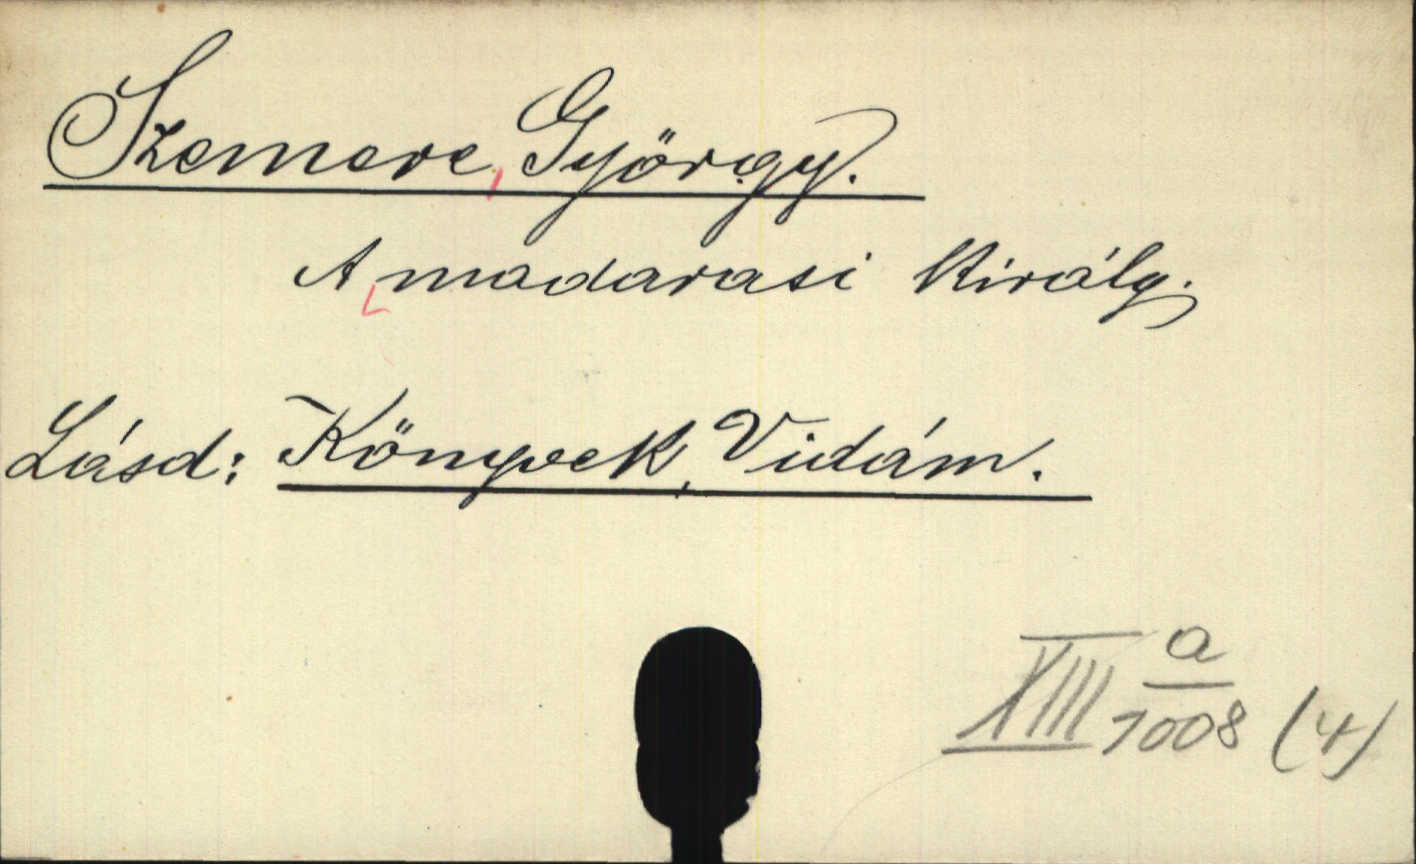 Szemere, György.
A madarasi Király.
Lásd: Könyvek, Vidám.
XIII a/1008 (4)